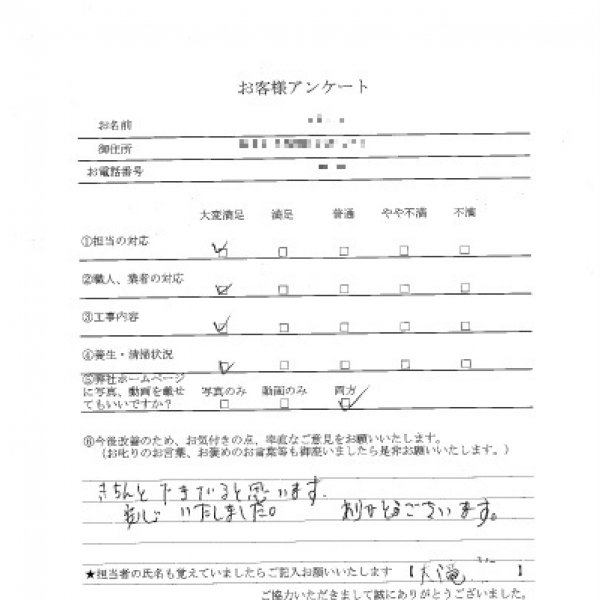 お客様アンケート
お名前
御住所
お電話番号
大変満足 満足 普通 やや不満 不満
①担当の対応
②職人、業者の対応
③工事内容
④養生・清掃状況
⑤弊社ホームページ
に写真、動画を載せ 写真のみ 動画のみ 両方
てもいいですか?
⑥今後改善のため、お気付きの点、率直なご意見をお願いいたします。
(お叱りのお言葉、お褒めのお言葉等も御座いましたら是非お願いいたします。)
きちんと と思います。
いたしました。 ありがとうございます。
★担当者の氏名も覚えていましたらご記入お願いいたします 【大滝 】
ご協力いただきまして誠にありがとうございました。